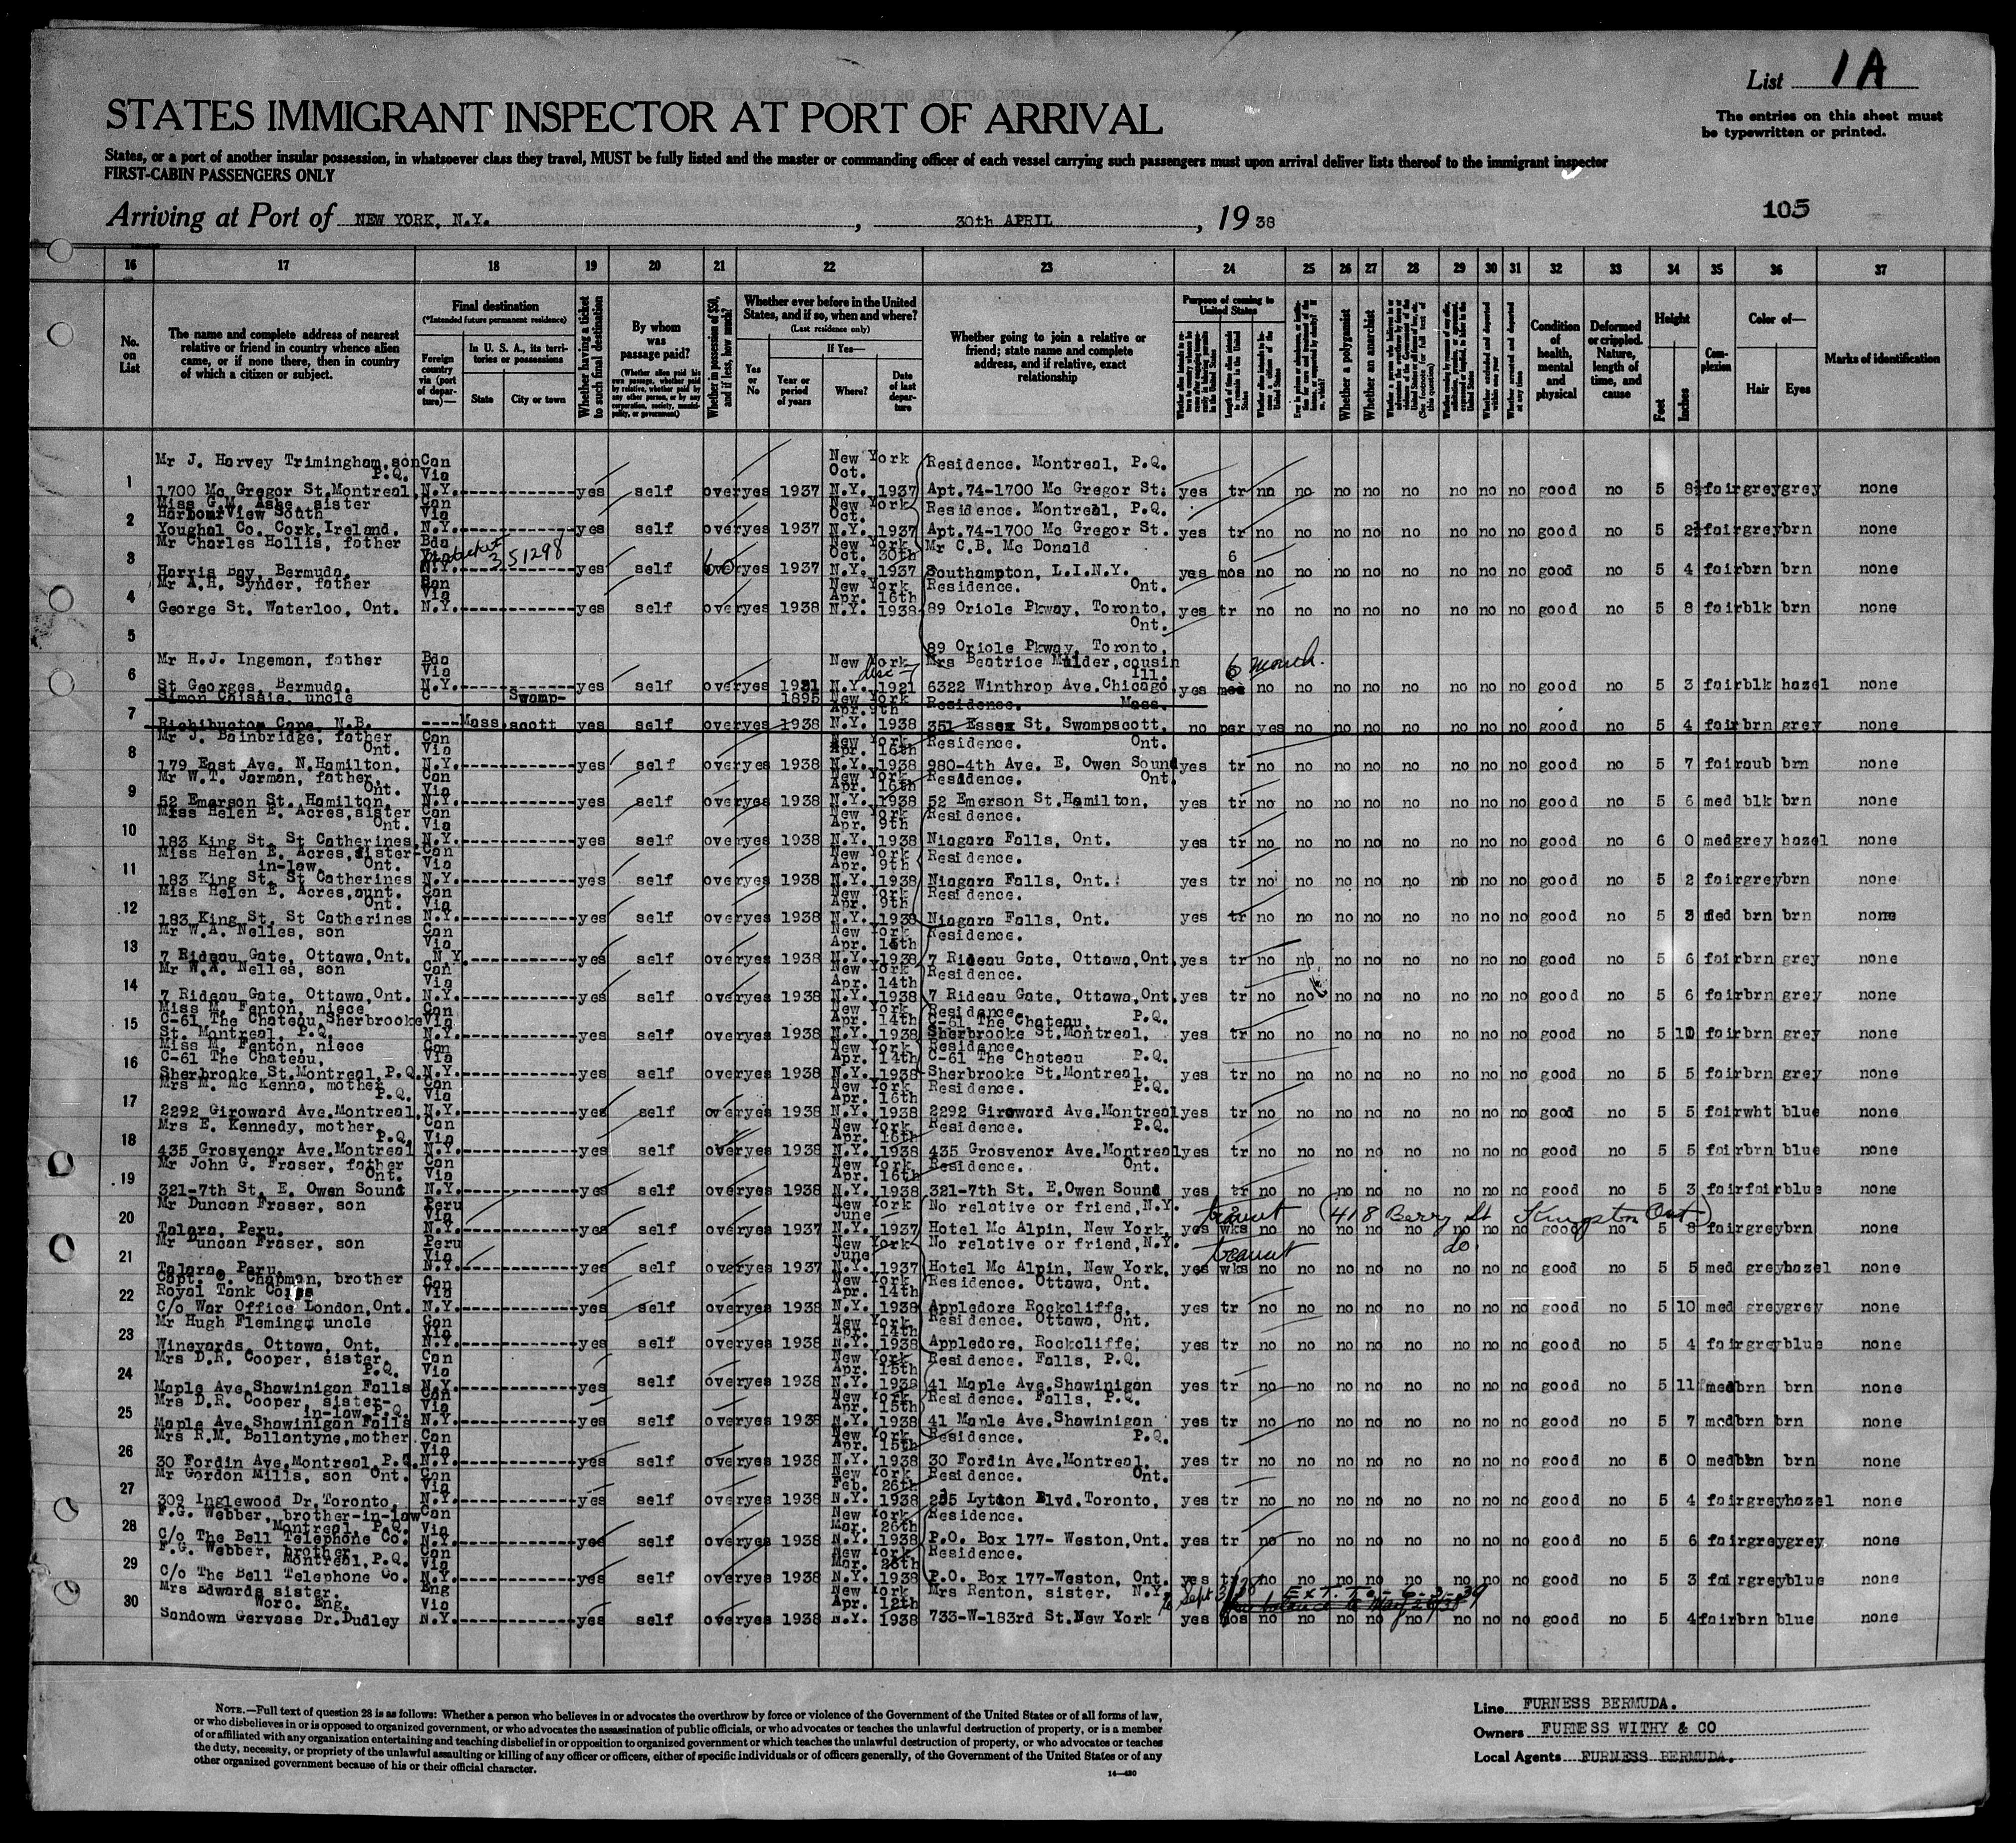 List 1A
STATES IMMIGRANT INSPECTOR AT PORT OF ARRIVAL
The entries on this sheet must
be typewritten or printed.
States, or a port of another insular possession, in whatsoever class they travel, MUST be fully listed and the master or commanding officer of each vessel carrying such passengers must upon arrival deliver lists thereof to the immigrant inspector
FIRST-CABIN PASSENGERS ONLY
Arriving at Port of NEW YORK, N.Y. , 30th APRIL , 19 38
105
16 17 18 19 20 21 22 23 24 25 26 27 28 29 30 31 32 33 34 35 36 37
No. on List
The name and complete address of nearest relative or friend in country whence alien came, or if none there, then in country of which a citizen or subject.
Final destination
(*Intended future permanent residence)
Foreign country via (port of departure)—
In U. S. A., its territories or possessions
State City or town
Whether having a ticket to such final destination
By whom was passage paid?
(Whether alien paid his own passage, whether paid by relative, whether paid by any other person, or by any corporation, society, municipality, or government)
Whether in possession of $50, and if less, how much?
Whether ever before in the United States, and if so, when and where?
(Last residence only)
If Yes—
Yes or No
Year or period of years
Where?
Date of last departure
Whether going to join a relative or friend; state name and complete address, and if relative, exact relationship
Purpose of coming to United States
Whether a polygamist
Whether an anarchist
Condition of health, mental and physical
Deformed or crippled. Nature, length of time, and cause
Height
Feet Inches
Complexion
Color of—
Hair Eyes
Marks of identification
1 Mr J. Harvey Trimingham, son Can New York Residence. Montreal, P.Q.
P.Q. Via Oct.
1700 Mc Gregor St.Montreal, N.Y. yes self over yes 1937 N.Y. 1937 Apt.74-1700 Mc Gregor St. yes tr no no no no no no no no good no 5 8½ fair grey grey none
2 Miss G.M. Ashe, sister Can New York
Harbour View South Via Oct. Residence. Montreal, P.Q.
Youghal Co. Cork, Ireland. N.Y. yes self over yes 1937 N.Y. 1937 Apt.74-1700 Mc Gregor St. yes tr no no no no no no no no good no 5 2½ fair grey brn none
3 Mr Charles Hollis, father Bda New York Mr C.B. Mc Donald
Via 351298 Oct. 30th 6
Harris Bay, Bermuda. N.Y. yes self over 60 yes 1937 N.Y. 1937 Southampton, L.I.N.Y. yes mos no no no no no no no no good no 5 4 fair brn brn none
4 Mr A.H. Synder, father Can New York Residence. Ont.
Via Apr. 16th
George St. Waterloo, Ont. N.Y. yes self over yes 1938 N.Y. 1938 89 Oriole Pkway, Toronto, yes tr no no no no no no no no good no 5 8 fair blk brn none
5 Ont.
89 Oriole Pkway, Toronto,
6 Mr H.J. Ingeman, father Bda New York Mrs Beatrice Mulder, cousin 6 month.
Via Dec 7 Ill.
St Georges, Bermuda. N.Y. yes self over yes 1921 N.Y. 1921 6322 Winthrop Ave.Chicago yes mos no no no no no no no no good no 5 3 fair blk hazel none
7 Simon Chissie, uncle C Swamp- 1895 New York Residence. Mass.
Apr. 9th
Richibucton Cape, N.B. Mass scott yes self over yes 1938 N.Y. 1938 351 Essex St. Swampscott, no per yes no no no no no no no good no 5 4 fair brn grey none
8 Mr J. Bainbridge, father Can New York Residence. Ont.
Ont. Via Apr. 16th
179 East Ave. N.Hamilton, N.Y. yes self over yes 1938 N.Y. 1938 980-4th Ave. E. Owen Sound yes tr no no no no no no no no good no 5 7 fair aub brn none
9 Mr W.T. Jarman, father. Can New York Residence. Ont.
Ont. Via Apr. 16th
52 Emerson St. Hamilton, N.Y. yes self over yes 1938 N.Y. 1938 52 Emerson St.Hamilton, yes tr no no no no no no no no good no 5 6 med blk brn none
10 Miss Helen E. Acres, sister Can New York Residence.
Ont. Via Apr. 9th
183 King St. St Catherines, N.Y. yes self over yes 1938 N.Y. 1938 Niagara Falls, Ont. yes tr no no no no no no no no good no 6 0 med grey hazel none
11 Miss Helen E. Acres, sister- Can New York Residence.
in-law. Ont. Via Apr. 9th
183 King St. St Catherines N.Y. yes self over yes 1938 N.Y. 1938 Niagara Falls, Ont. yes tr no no no no no no no no good no 5 2 fair grey brn none
12 Miss Helen E. Acres, aunt. Can New York Residence.
Ont. Via Apr. 9th
183 King St. St Catherines N.Y. yes self over yes 1938 N.Y. 1938 Niagara Falls, Ont. yes tr no no no no no no no no good no 5 3 med brn brn none
13 Mr W.A. Nelles, son Can New York Residence.
Via Apr. 14th
7 Rideau Gate, Ottawa, Ont. N.Y. yes self over yes 1938 N.Y. 1938 7 Rideau Gate, Ottawa, Ont. yes tr no no no no no no no no good no 5 6 fair brn grey none
14 Mr W.A. Nelles, son Can New York Residence.
Via Apr. 14th
7 Rideau Gate, Ottawa, Ont. N.Y. yes self over yes 1938 N.Y. 1938 7 Rideau Gate, Ottawa, Ont. yes tr no no no no no no no no good no 5 6 fair brn grey none
15 Miss M. Fenton, niece Can New York Residence.
C-61 The Chateau, Sherbrooke Via Apr. 14th C-61 The Chateau, P.Q.
St. Montreal, P.Q. N.Y. yes self over yes 1938 N.Y. 1938 Sherbrooke St.Montreal, yes tr no no no no no no no no good no 5 10 fair brn grey none
16 Miss M. Fenton, niece Can New York Residence
C-61 The Chateau, Via Apr. 14th C-61 The Chateau P.Q.
Sherbrooke St.Montreal, P.Q. N.Y. yes self over yes 1938 N.Y. 1938 Sherbrooke St.Montreal, yes tr no no no no no no no no good no 5 5 fair brn grey none
17 Mrs M. Mc Kenna, mother Can New York Residence. P.Q.
P.Q. Via Apr. 16th
2292 Giroward Ave.Montreal, N.Y. yes self over yes 1938 N.Y. 1938 2292 Giroward Ave.Montreal yes tr no no no no no no no no good no 5 5 fair wht blue none
18 Mrs E. Kennedy, mother, Can New York Residence. P.Q.
P.Q. Via Apr. 16th
435 Grosvenor Ave.Montreal N.Y. yes self over yes 1938 N.Y. 1938 435 Grosvenor Ave.Montreal yes tr no no no no no no no no good no 5 5 fair brn blue none
19 Mr John G. Fraser, father Can New York Residence. Ont.
Ont. Via Apr. 16th
321-7th St. E. Owen Sound N.Y. yes self over yes 1938 N.Y. 1938 321-7th St. E.Owen Sound yes tr no no no no no no no no good no 5 3 fair fair blue none
20 Mr Duncan Fraser, son Peru New York No relative or friend, N.Y. transit (418 Berry St Kingston Ont)
Via June 2
Talara, Peru. N.Y. yes self over yes 1937 N.Y. 1937 Hotel Mc Alpin, New York, yes wks no no no no no no no no good no 5 8 fair grey brn none
21 Mr Duncan Fraser, son Peru New York No relative or friend, N.Y. transit do.
Via June
Talara, Peru. N.Y. yes self over yes 1937 N.Y. 1937 Hotel Mc Alpin, New York, yes wks no no no no no no no no good no 5 5 med grey hazel none
22 Capt. C. Chapman, brother Can New York Residence. Ottawa, Ont.
Royal Tank Corps Via Apr. 14th
C/o War Office London, Ont. N.Y. yes self over yes 1938 N.Y. 1938 Appledore Rockcliffe, yes tr no no no no no no no no good no 5 10 med grey grey none
23 Mr Hugh Fleming, uncle Can New York Residence. Ottawa, Ont.
Via Apr. 14th
Wineyards, Ottawa, Ont. N.Y. yes self over yes 1938 N.Y. 1938 Appledore, Rockcliffe, yes tr no no no no no no no no good no 5 4 fair grey blue none
24 Mrs D.R. Cooper, sister. Can New York Residence. Falls, P.Q.
P.Q. Via Apr. 15th
Maple Ave.Shawinigan Falls N.Y. yes self over yes 1938 N.Y. 1938 41 Maple Ave.Shawinigan yes tr no no no no no no no no good no 5 11 med brn brn none
25 Mrs D.R. Cooper, sister- Can New York Residence. Falls, P.Q.
in-law P.Q. Via Apr. 15th
Maple Ave.Shawinigan Falls N.Y. yes self over yes 1938 N.Y. 1938 41 Maple Ave.Shawinigan yes tr no no no no no no no no good no 5 7 med brn brn none
26 Mrs R.M. Ballantyne, mother Can New York Residence. P.Q.
Via Apr. 15th
30 Fordin Ave.Montreal, P.Q. N.Y. yes self over yes 1938 N.Y. 1938 30 Fordin Ave.Montreal, yes tr no no no no no no no no good no 5 0 med brn brn none
27 Mr Gordon Mills, son Ont. Can New York Residence. Ont.
Via Feb. 26th
309 Inglewood Dr.Toronto, N.Y. yes self over yes 1938 N.Y. 1938 255 Lytton Blvd.Toronto, yes tr no no no no no no no no good no 5 4 fair grey hazel none
28 F.G. Webber, brother-in-law Can New York Residence.
Montreal, P.Q. Via Mar. 26th
C/o The Bell Telephone Co. N.Y. yes self over yes 1938 N.Y. 1938 P.O. Box 177- Weston, Ont. yes tr no no no no no no no no good no 5 6 fair grey grey none
29 F.G. Webber, brother Can New York Residence.
Montreal, P.Q. Via Mar. 26th
C/o The Bell Telephone Co. N.Y. yes self over yes 1938 N.Y. 1938 P.O. Box 177-Weston, Ont. yes tr no no no no no no no no good no 5 3 fair grey blue none
30 Mrs Edwards sister. Eng New York Mrs Renton, sister. N.Y. to Sept 3/38 EXT. TO
Worc. Eng. Via Apr. 12th
Sandown Gervase Dr.Dudley N.Y. yes self over yes 1938 N.Y. 1938 733-W-183rd St.New York yes mos no no no no no no no no good no 5 4 fair brn blue none
NOTE.—Full text of question 28 is as follows: Whether a person who believes in or advocates the overthrow by force or violence of the Government of the United States or of all forms of law,
or who disbelieves in or is opposed to organized government, or who advocates the assassination of public officials, or who advocates or teaches the unlawful destruction of property, or is a member
of or affiliated with any organization entertaining and teaching disbelief in or opposition to organized government or which teaches the unlawful destruction of property, or who advocates or teaches
the duty, necessity, or propriety of the unlawful assaulting or killing of any officer or officers, either of specific individuals or of officers generally, of the Government of the United States or of any
other organized government because of his or their official character.
14—430
Line FURNESS BERMUDA.
Owners FURNESS WITHY & CO
Local Agents FURNESS BERMUDA.